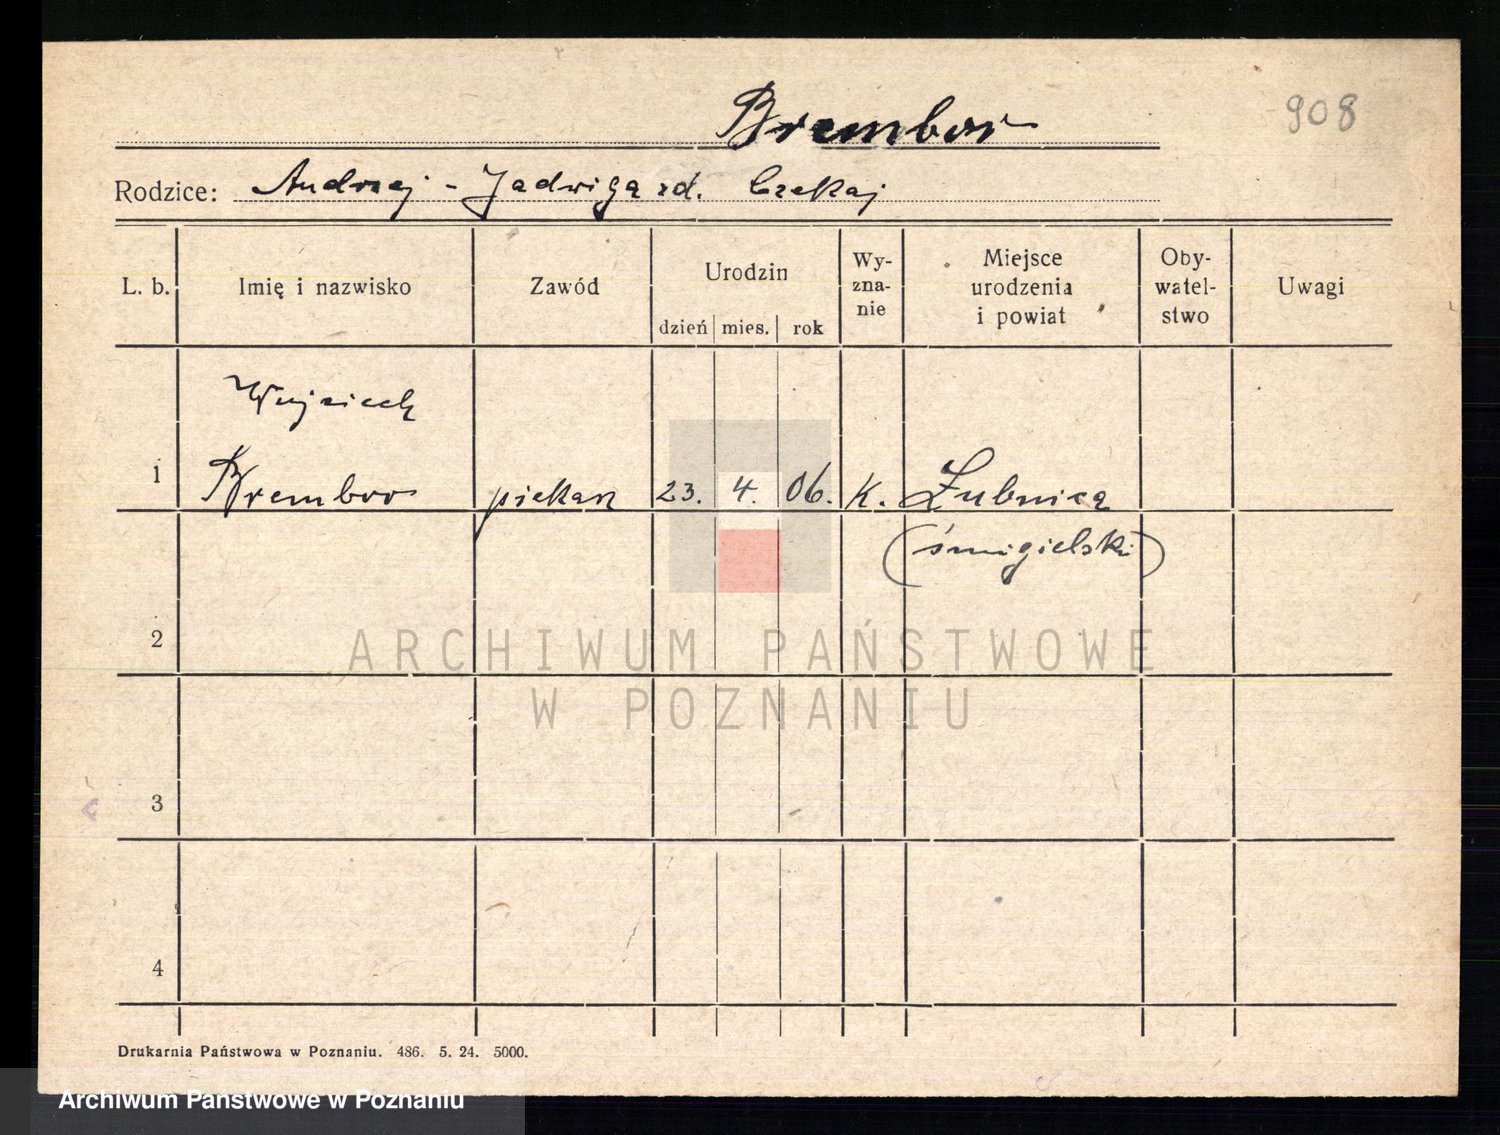 908
Brembor
Rodzice: Andrzej - Jadwiga zd. Czekaj
L. b. Imię i nazwisko Zawód Urodzin dzień mies. rok Wy-zna-nie Miejsce urodzenia i powiat Oby-watel-stwo Uwagi
Wojciech
1 Brembor piekarz 23. 4. 06. k. Łubnica
(śmigielski)
2
ARCHIWUM PAŃSTWOWE
W POZNANIU
3
4
Drukarnia Państwowa w Poznaniu. 486. 5. 24. 5000.
Archiwum Państwowe w Poznaniu